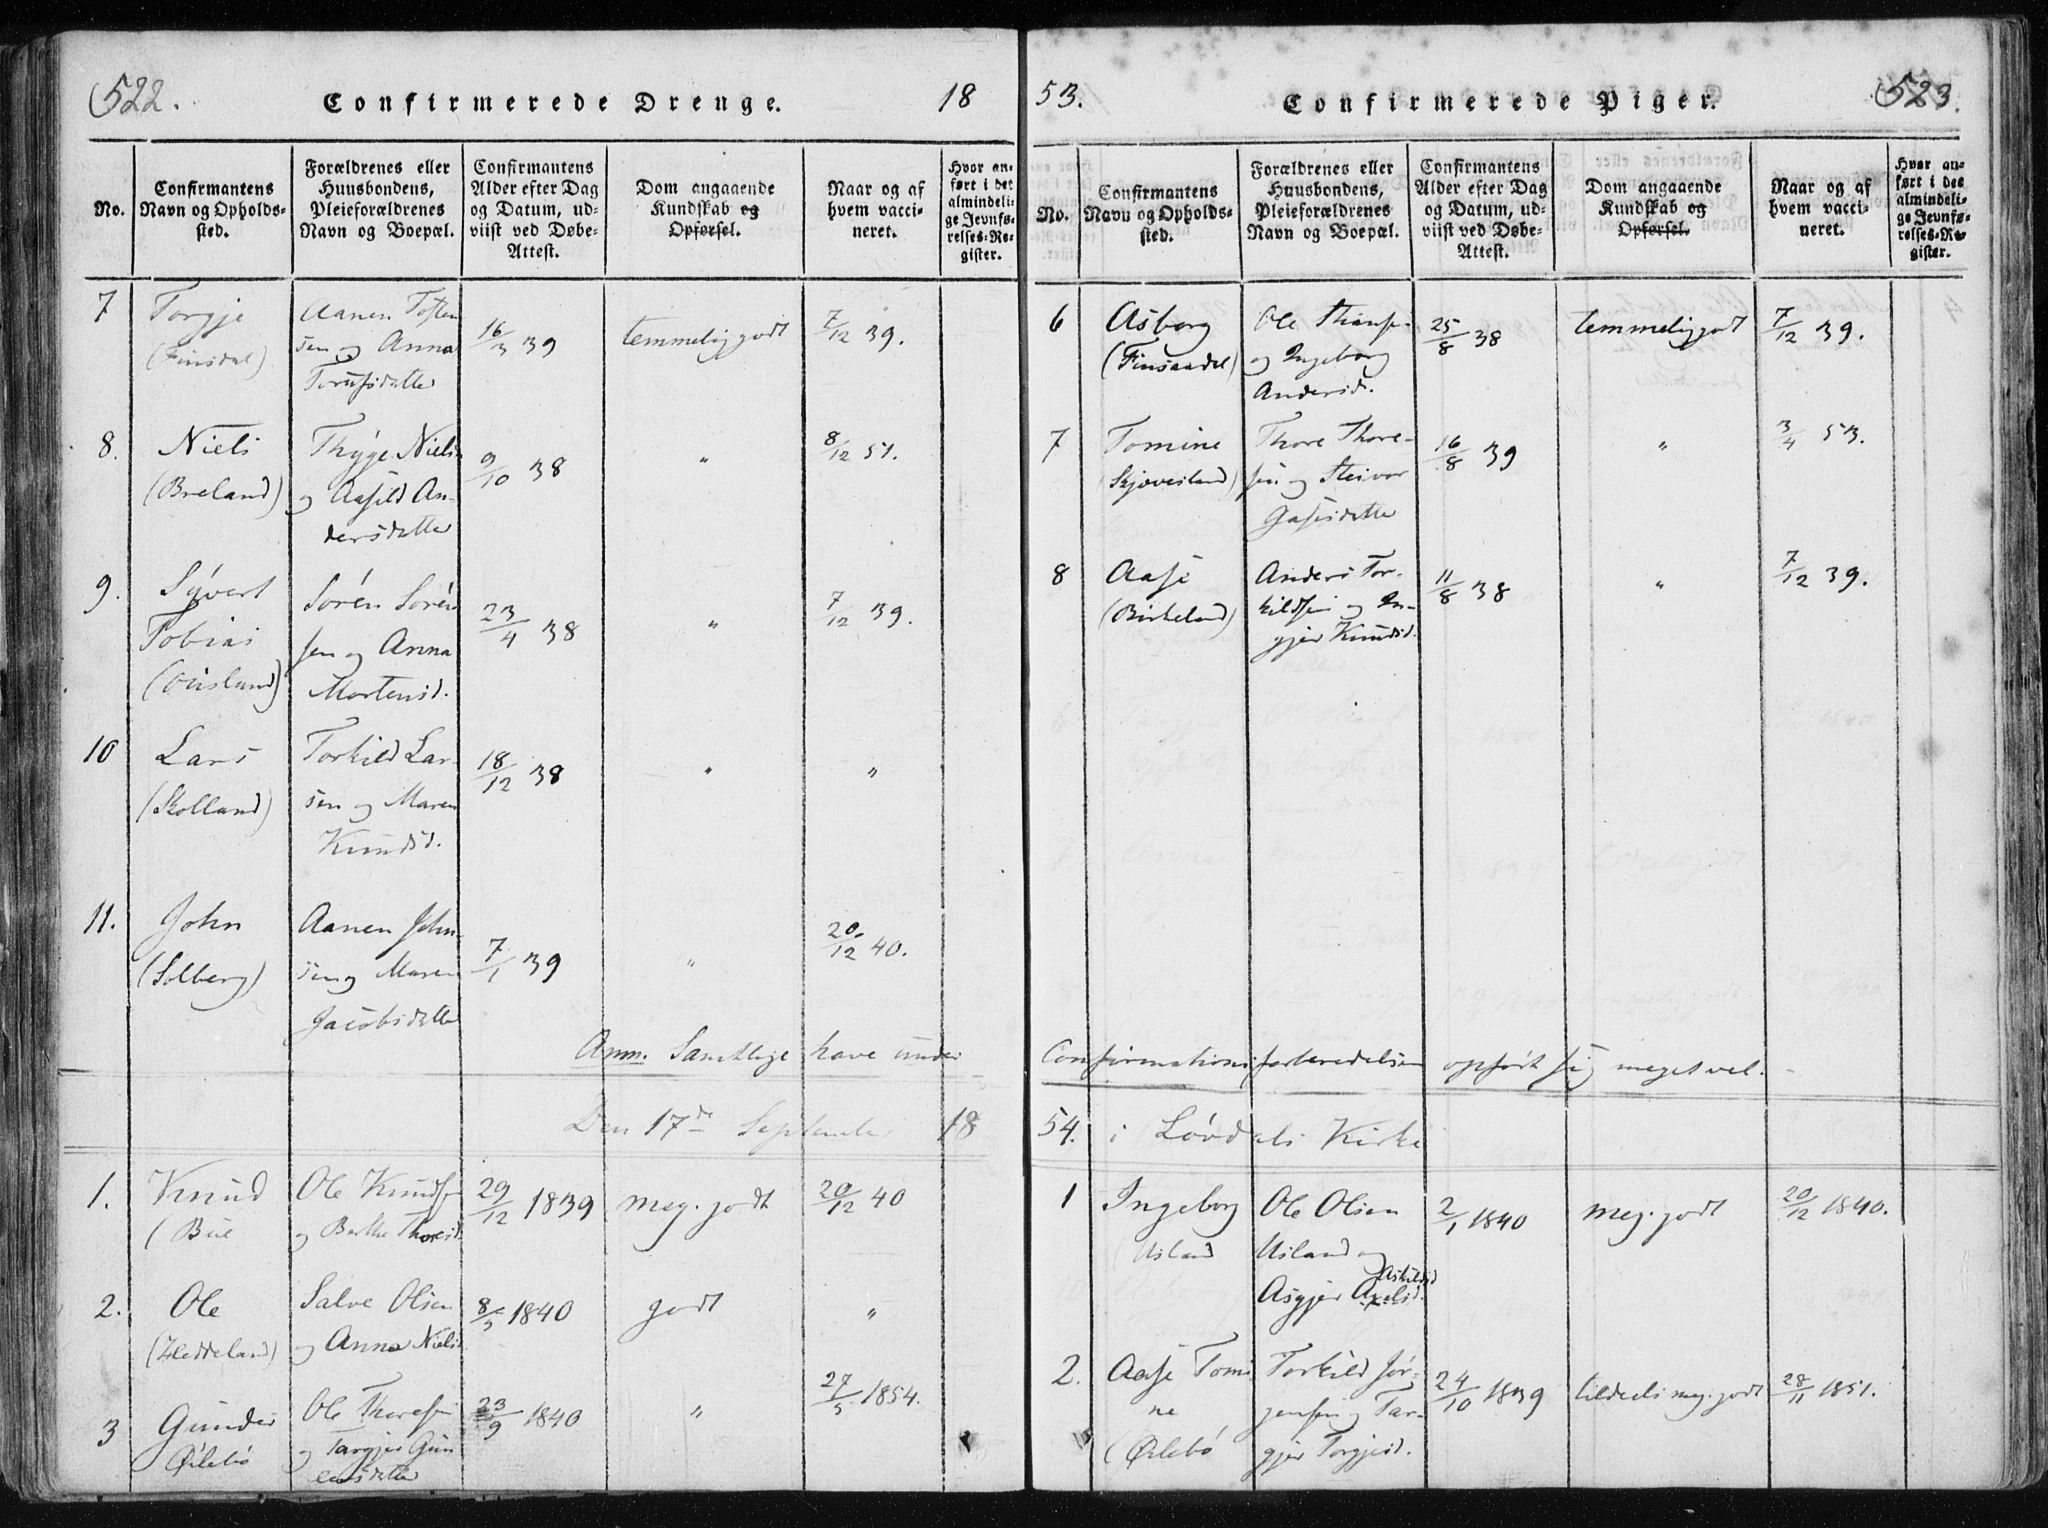 522.
Confirmerede Drenge.
18
No.
Confirmantens Navn og Opholds-sted.
Forældrenes eller Huusbondens, Pleieforældrenes Navn og Boepæl.
Confirmantens Alder efter Dag og Datum, ud-viist ved Døbe-Attest.
Dom angaaende Kundskab og Opførsel.
Naar og af hvem vacci-neret.
Hvor an-ført i det almindeli-ge Jevnfø-relses-Re-gister.
7
Torgje
(Finsdal)
Aanen Tosten
sen og Anna
16/3 39
temmelig godt
7/12 39.
8.
Niels
(Breland)
Thyge Niels
og Aasild An-
dersdatter
9/10 38
"
8/12 51.
9.
Syvert
Tobias
Sören Sören
sen og Anna
Mortensd.
23/4 38
"
7/12 39.
10
Lars
(Skolland)
Torkild Lar-
sen og Maren
Knudsd.
18/12 38
"
"
11.
John
(Solberg)
Aanen John-
sen og Maren
Jacobsdatter
7/1 39
"
20/12 40.
Anm. Samtlige have under
Den 17de September 18
1.
Knud
(Bue
Ole Knudsen
og Berthe Thoresd.
29/12 1839
meg. godt
20/12 40
2.
Ole
(Heddeland)
Salve Olsen
og Anna Nielsd
8/5 1840
godt
"
3
Gunder
Ørlebø
Ole Thoresen
og Targjer Gun
dersdatter
23/9 1840
"
27/5 1854.
53.
Confirmerede Piger.
523.
No.
Confirmantens Navn og Opholds-sted.
Forældrenes eller Huusbondens, Pleieforældrenes Navn og Boepæl.
Confirmantens Alder efter Dag og Datum, ud-viist ved Døbe-Attest.
Dom angaaende Kundskab og Opførsel.
Naar og af hvem vacci-neret.
Hvor an-ført i det almindeli-ge Jevnfø-relses-Re-gister.
6
Asborg
(Finsaadal)
Ole
og Ingeborg
Andersd.
25/8 38
temmelig godt
7/12 39.
7
Tomine
Skjævesland)
Thore Thore-
sen og Steivor
16/8 39
"
3/4 53.
8
Aase
(Birkeland)
Anders Tor-
kildsen og In-
gjer Knudsd.
11/8 38
"
7/12 39.
Confirmationsforberedelsen opført sig meget vel.
54. i Løvdals Kirke
1
Ingeborg
(Usland
Ole Olsen
Usland og
Askildsd
Asgjer Axelsd.
2/1 1840
meg. godt
20/12 1840.
2.
Aase Tomi
ne
(Ørlebø
Torkild Jör-
gensen og Tar-
gjer Torgjesd.
24/10 1839
tildeels meg. godt
28/11 1851.